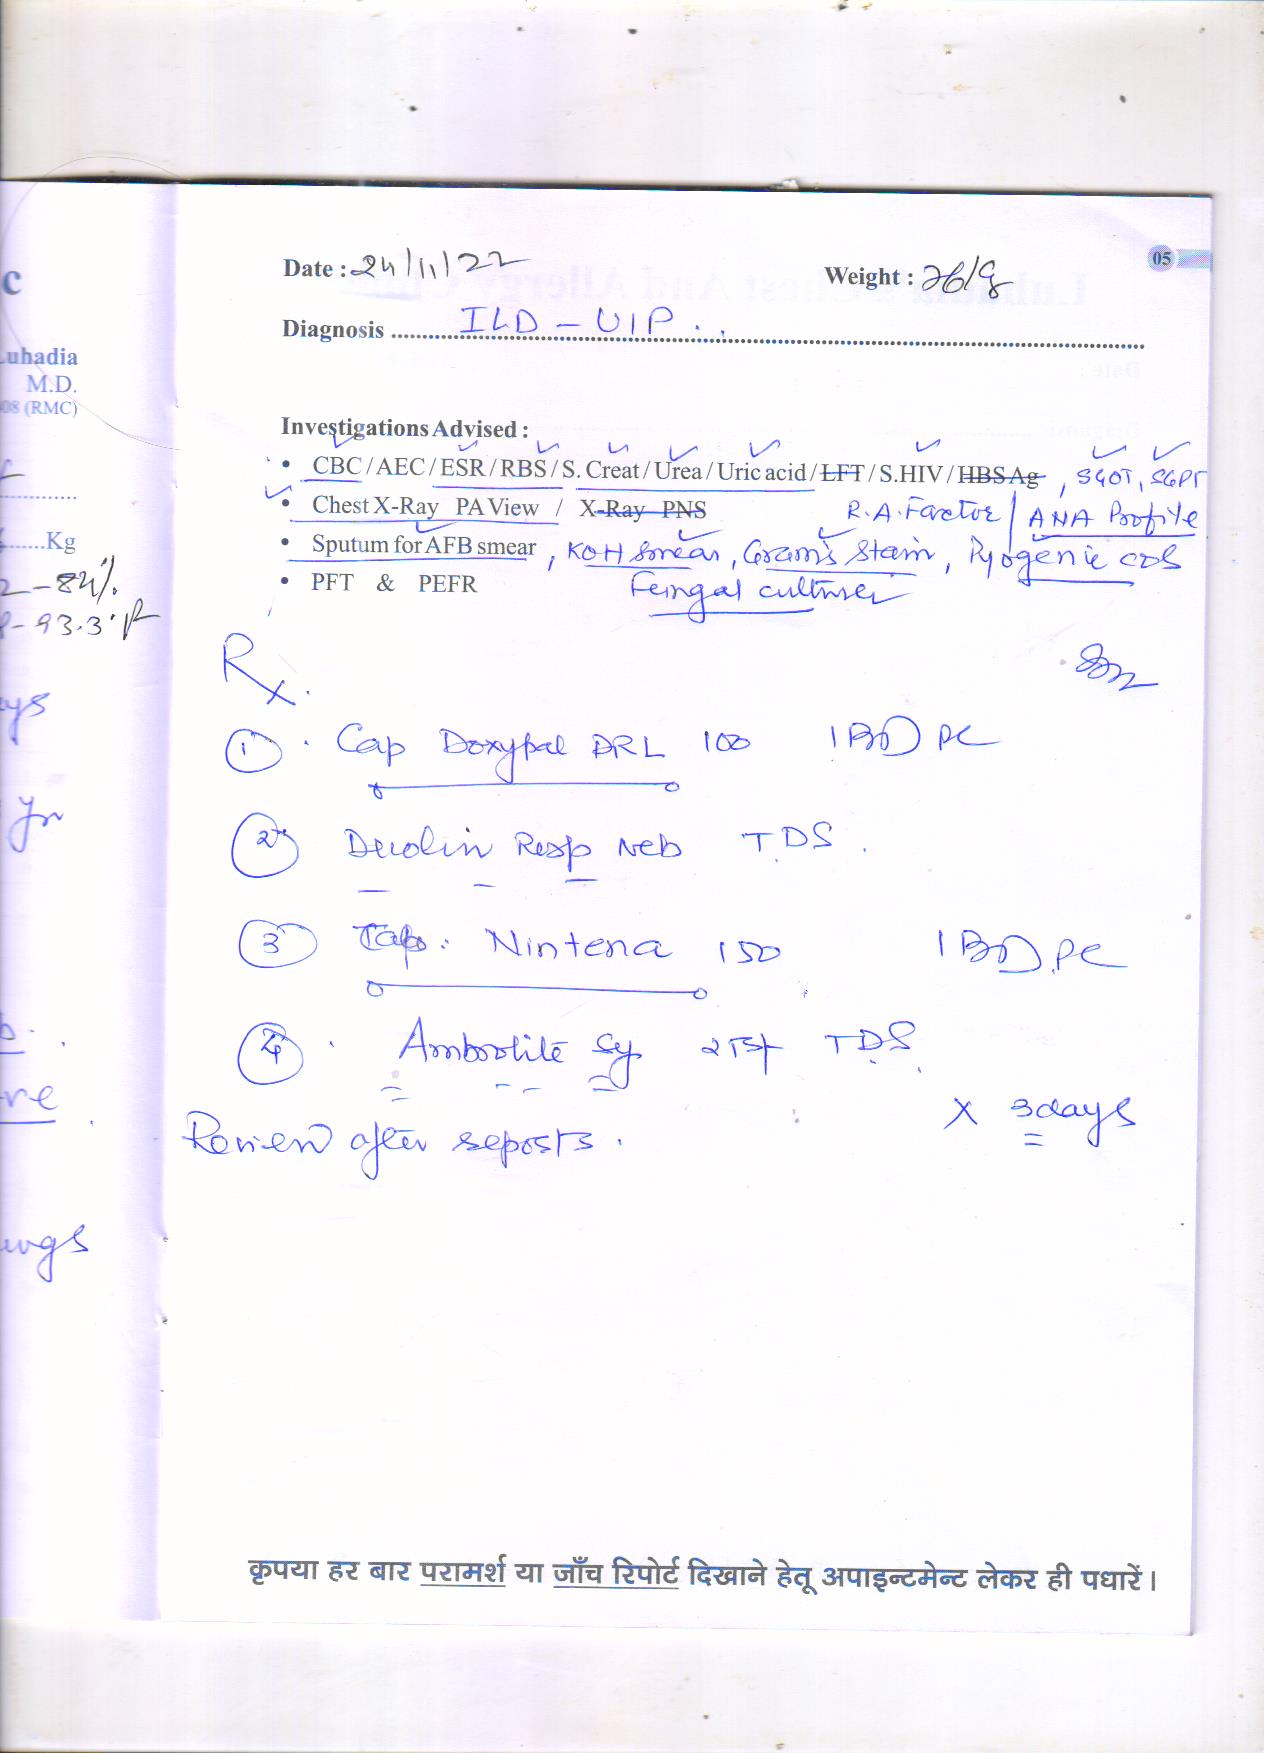 c
Luhadia
M.D.
08 (RMC)
Kg
2-84%
93.3
ys
re
ungs
05
Date : 24/11/22 Weight :
Diagnosis ILD - UIP
Investigations Advised :
• CBC / AEC / ESR / RBS / S. Creat / Urea / Uric acid / LFT / S.HIV / HBSAg , SGOT, SGPT
• Chest X-Ray PA View / X-Ray PNS R.A. Factor / ANA Profile
• Sputum for AFB smear , KOH Smear, Gram's Stain, Pyogenic c/s
• PFT & PEFR Fungal culture
Rx.
① Cap Doxypal DRL 100 1 BD PC
② Duolin Resp Neb TDS
③ Cap. Nintena 150 1 BD PC
④ Ambrolite Sy 2 TSF TDS
X 3 days
Review after reports.
कृपया हर बार परामर्श या जाँच रिपोर्ट दिखाने हेतू अपाइन्टमेन्ट लेकर ही पधारें।